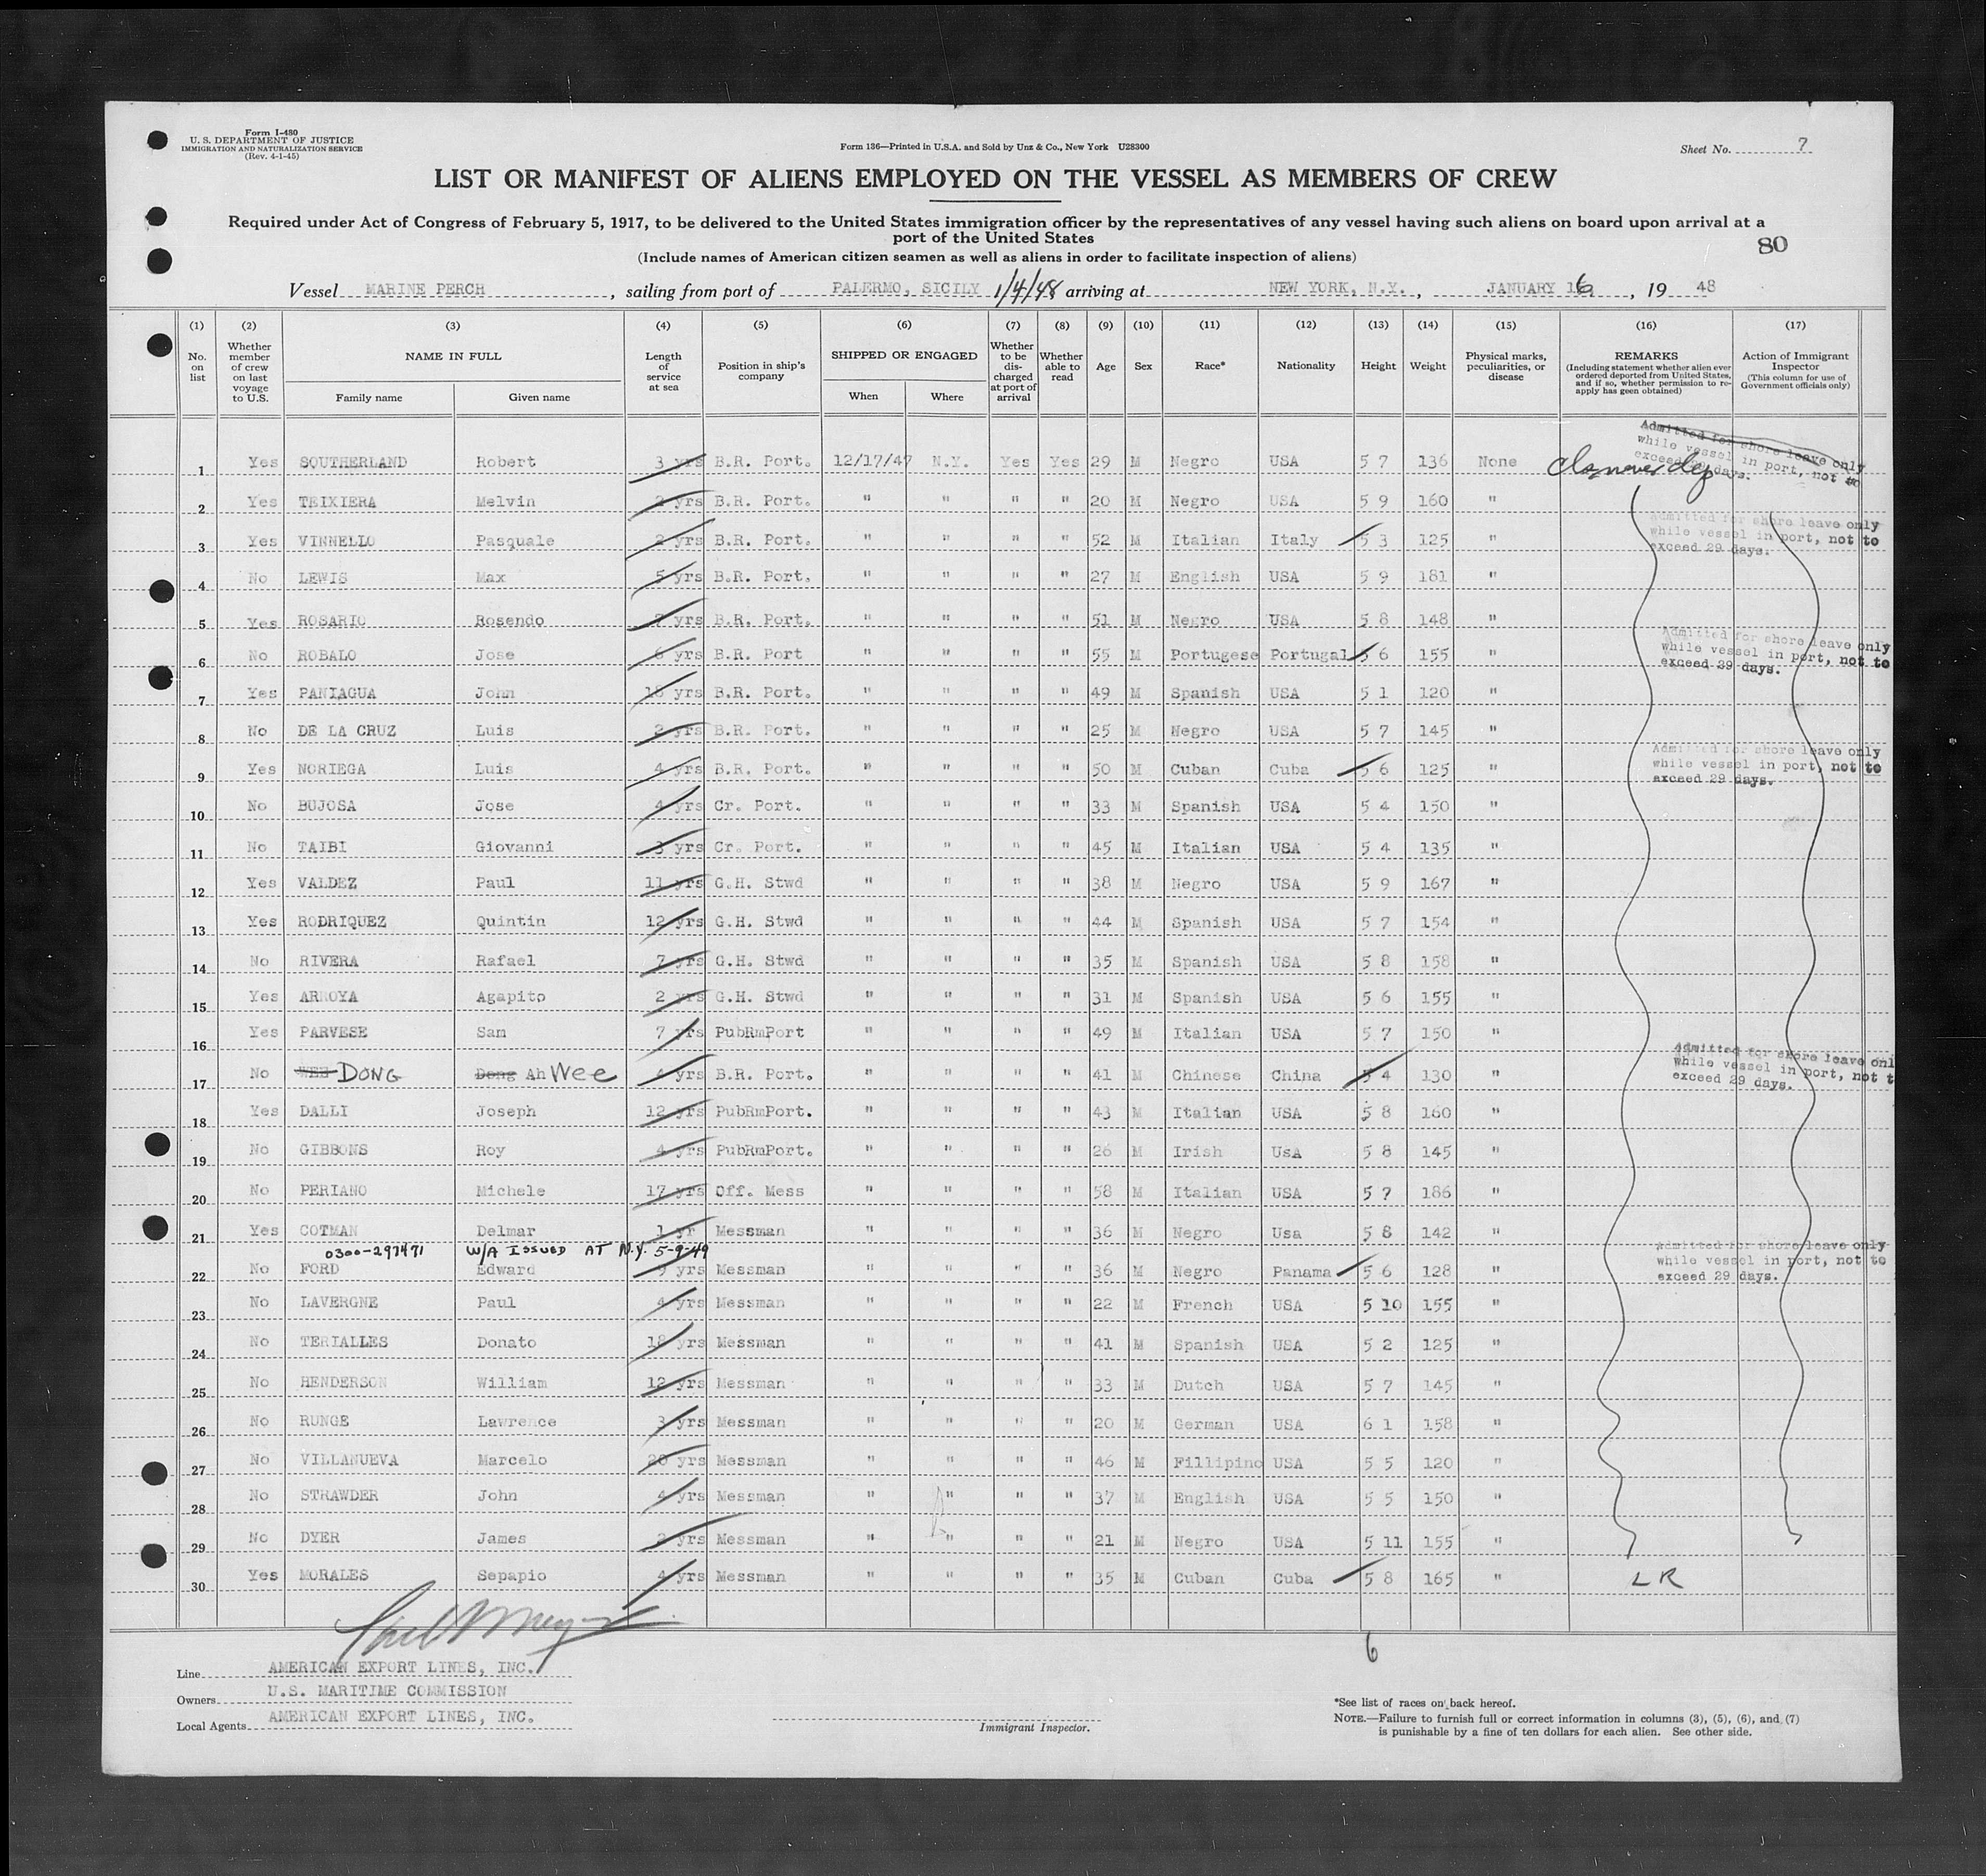 Form I-480
U. S. DEPARTMENT OF JUSTICE
IMMIGRATION AND NATURALIZATION SERVICE
(Rev. 4-1-45)
Form 136—Printed in U.S.A. and Sold by Unz & Co., New York U28300
Sheet No. 7
LIST OR MANIFEST OF ALIENS EMPLOYED ON THE VESSEL AS MEMBERS OF CREW
Required under Act of Congress of February 5, 1917, to be delivered to the United States immigration officer by the representatives of any vessel having such aliens on board upon arrival at a
port of the United States
80
(Include names of American citizen seamen as well as aliens in order to facilitate inspection of aliens)
Vessel MARINE PERCH , sailing from port of PALERMO, SICILY 1/4/48 arriving at NEW YORK, N.Y. , JANUARY 16 , 19 48
(1) (2) (3) (4) (5) (6) (7) (8) (9) (10) (11) (12) (13) (14) (15) (16) (17)
No. on list
Whether member of crew on last voyage to U.S.
NAME IN FULL
Family name Given name
Length of service at sea
Position in ship's company
SHIPPED OR ENGAGED
When Where
Whether to be discharged at port of arrival
Whether able to read
Age Sex Race* Nationality Height Weight
Physical marks, peculiarities, or disease
REMARKS
(Including statement whether alien ever ordered deported from United States, and if so, whether permission to re-apply has geen obtained)
Action of Immigrant Inspector
(This column for use of Government officials only)
1 Yes SOUTHERLAND Robert 3 yrs B.R. Port. 12/17/47 N.Y. Yes Yes 29 M Negro USA 5 7 136 None never dep Admitted for shore leave only while vessel in port, not to exceed 29 days.
2 Yes TEIXIERA Melvin 2 yrs B.R. Port. " " " " 20 M Negro USA 5 9 160 "
3 Yes VINNELLO Pasquale 2 yrs B.R. Port. " " " " 52 M Italian Italy 5 3 125 " Admitted for shore leave only while vessel in port, not to exceed 29 days.
4 No LEWIS Max 5 yrs B.R. Port. " " " " 27 M English USA 5 9 181 "
5 Yes ROSARIO Rosendo 7 yrs B.R. Port. " " " " 51 M Negro USA 5 8 148 "
6 No ROBALO Jose 6 yrs B.R. Port " " " " 55 M Portugese Portugal 5 6 155 " Admitted for shore leave only while vessel in port, not to exceed 29 days.
7 Yes PANIAGUA John 18 yrs B.R. Port. " " " " 49 M Spanish USA 5 1 120 "
8 No DE LA CRUZ Luis 2 yrs B.R. Port. " " " " 25 M Negro USA 5 7 145 "
9 Yes NORIEGA Luis 4 yrs B.R. Port. " " " " 50 M Cuban Cuba 5 6 125 " Admitted for shore leave only while vessel in port, not to exceed 29 days.
10 No BUJOSA Jose 4 yrs Cr. Port. " " " " 33 M Spanish USA 5 4 150 "
11 No TAIBI Giovanni 3 yrs Cr. Port. " " " " 45 M Italian USA 5 4 135 "
12 Yes VALDEZ Paul 11 yrs G.H. Stwd " " " " 38 M Negro USA 5 9 167 "
13 Yes RODRIQUEZ Quintin 12 yrs G.H. Stwd " " " " 44 M Spanish USA 5 7 154 "
14 No RIVERA Rafael 7 yrs G.H. Stwd " " " " 35 M Spanish USA 5 8 158 "
15 Yes ARROYA Agapito 2 yrs G.H. Stwd " " " " 31 M Spanish USA 5 6 155 "
16 Yes PARVESE Sam 7 yrs PubRmPort " " " " 49 M Italian USA 5 7 150 "
17 No WEE DONG Dong Ah Wee 4 yrs B.R. Port. " " " " 41 M Chinese China 5 4 130 " Admitted for shore leave onl while vessel in port, not t exceed 29 days.
18 Yes DALLI Joseph 12 yrs PubRmPort. " " " " 43 M Italian USA 5 8 160 "
19 No GIBBONS Roy 4 yrs PubRmPort. " " " " 26 M Irish UsA 5 8 145 "
20 No PERIANO Michele 17 yrs Off. Mess " " " " 58 M Italian USA 5 7 186 "
21 Yes COTMAN Delmar 1 yr Messman " " " " 36 M Negro Usa 5 8 142 "
0300-297471 W/A ISSUED AT N.Y. 5-9-49
22 No FORD Edward 9 yrs Messman " " " " 36 M Negro Panama 5 6 128 " Admitted for shore leave only while vessel in port, not to exceed 29 days.
23 No LAVERGNE Paul 4 yrs Messman " " " " 22 M French USA 5 10 155 "
24 No TERIALLES Donato 18 yrs Messman " " " " 41 M Spanish USA 5 2 125 "
25 No HENDERSON William 12 yrs Messman " " " " 33 M Dutch USA 5 7 145 "
26 No RUNGE Lawrence 3 yrs Messman " " " " 20 M German USA 6 1 158 "
27 No VILLANUEVA Marcelo 20 yrs Messman " " " " 46 M Fillipino USA 5 5 120 "
28 No STRAWDER John 4 yrs Messman " " " " 37 M English USA 5 5 150 "
29 No DYER James 2 yrs Messman " " " " 21 M Negro USA 5 11 155 "
30 Yes MORALES Sepapio 4 yrs Messman " " " " 35 M Cuban Cuba 5 8 165 " LR
6
Line AMERICAN EXPORT LINES, INC.
Owners U.S. MARITIME COMMISSION
Local Agents AMERICAN EXPORT LINES, INC.
Immigrant Inspector.
*See list of races on back hereof.
NOTE.—Failure to furnish full or correct information in columns (3), (5), (6), and (7)
is punishable by a fine of ten dollars for each alien. See other side.